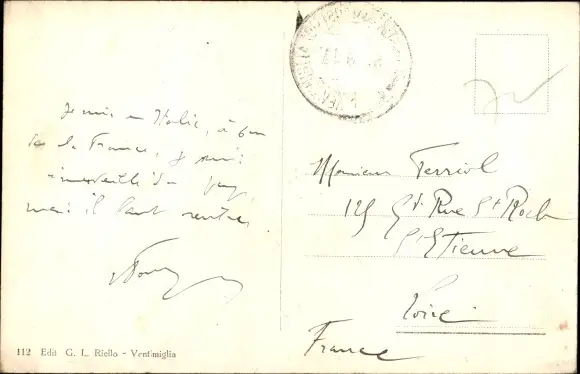 Je suis en Italie, à 6 km
de la France, je suis
émerveillé du pays,
mais il faut rentrer
Monsieur Ferriol
125 Gde Rue St Roch
St Etienne
Loire
France
112 Edit G. L. Riello - Ventimiglia